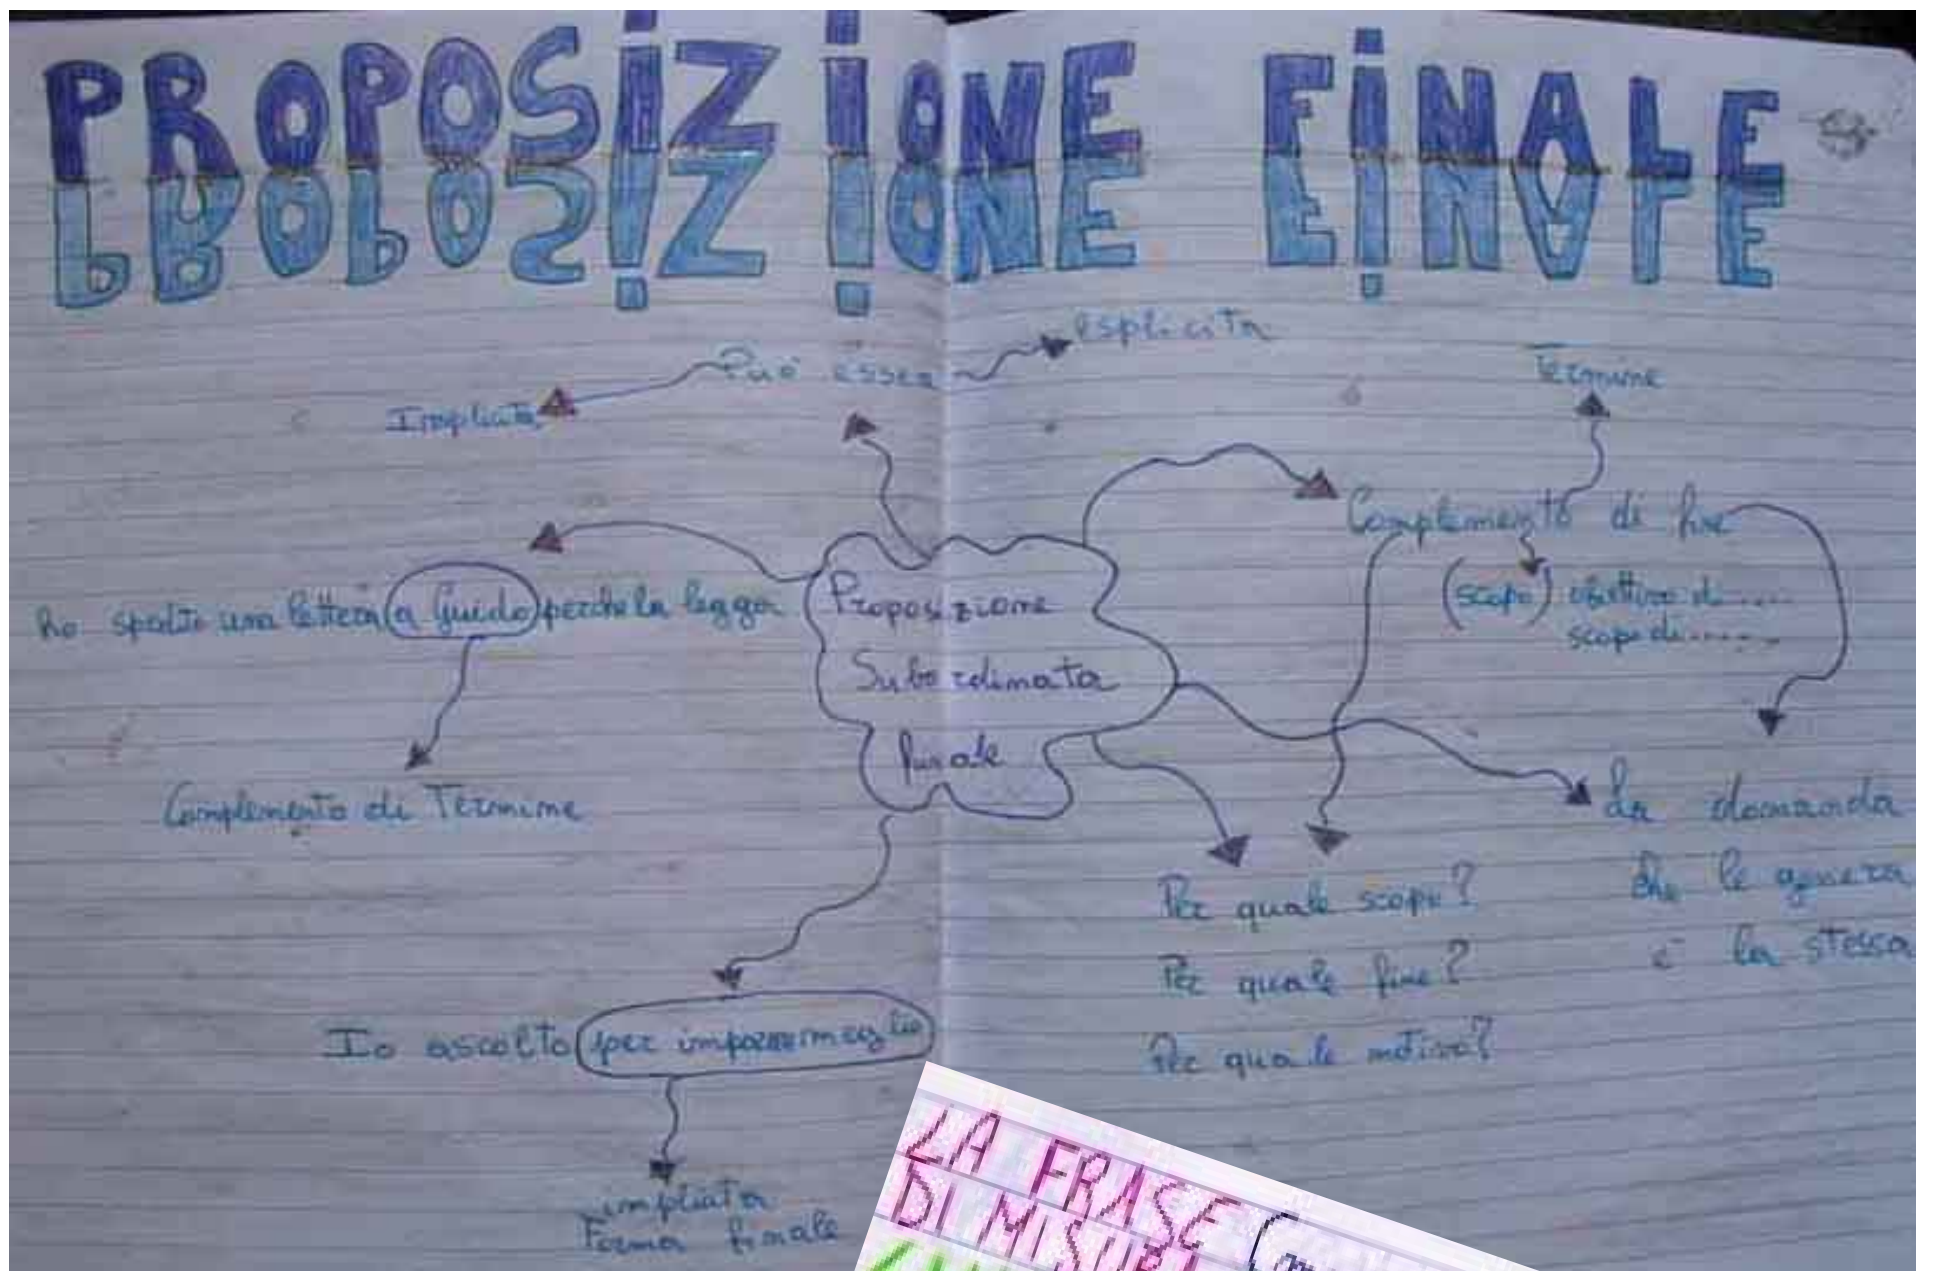 PROPOSIZIONE FINALE
Può essere
esplicita
Implicita
Termine
Complemento di fine
(scopo) obiettivo di......
scopo di.......
ho spedito una lettera a Guido perche la legga
Complemento di Termine
Proposizione
Subordinata
finale
La domanda
che le genera
è la stessa
Per quale scopo?
Per quale fine?
Per quale motivo?
Io ascolto per imparare meglio
implicita
Forma finale
LA FRASE
DI MISURA